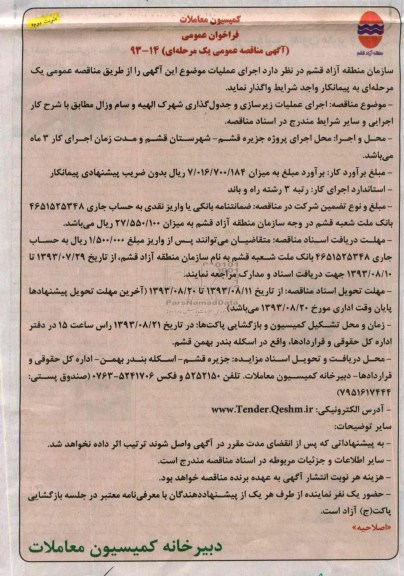 نوبت دوم
کمیسیون معاملات
فراخوان عمومی
(آگهی مناقصه عمومی یک مرحله‌ای) ۱۴-۹۳
منطقه آزاد قشم
سازمان منطقه آزاد قشم در نظر دارد اجرای عملیات موضوع این آگهی را از طریق مناقصه عمومی یک
مرحله‌ای به پیمانکار واجد شرایط واگذار نماید.
- موضوع مناقصه: اجرای عملیات زیرسازی و جدول‌گذاری شهرک الهیه و سام وزال مطابق با شرح کار
اجرایی و سایر شرایط مندرج در اسناد مناقصه.
- محل و اجرا: محل اجرای پروژه جزیره قشم- شهرستان قشم و مدت زمان اجرای کار ۳ ماه
می‌باشد.
- مبلغ برآورد کار: برآورد مبلغ به میزان ۷/۰۱۶/۷۰۰/۱۸۴ ریال بدون ضریب پیشنهادی پیمانکار
- استاندارد اجرای کار: رتبه ۳ رشته راه و باند
- مبلغ و نوع تضمین شرکت در مناقصه: ضمانتنامه بانکی یا واریز نقدی به حساب جاری ۴۶۵۱۵۲۵۳۴۸
بانک ملت شعبه قشم در وجه سازمان منطقه آزاد قشم به میزان ۲۷/۵۵۰/۱۰۰ ریال می‌باشد.
- مهلت دریافت اسناد مناقصه: متقاضیان می‌توانند پس از واریز مبلغ ۱/۵۰۰/۰۰۰ ریال به حساب
جاری ۴۶۵۱۵۲۵۳۴۸ بانک ملت شعبه قشم به نام سازمان منطقه آزاد قشم، از تاریخ ۱۳۹۳/۰۷/۲۹ تا
۱۳۹۳/۰۸/۱۰ جهت دریافت اسناد و مدارک مراجعه نمایند.
- مهلت تحویل اسناد مناقصه: از تاریخ ۱۳۹۳/۰۸/۱۱ تا ۱۳۹۳/۰۸/۲۰ (آخرین مهلت تحویل پیشنهادها
پایان وقت اداری مورخ ۱۳۹۳/۰۸/۲۰ می‌باشد)
ParsNamadData
- زمان و محل تشکیل کمیسیون و بازگشایی پاکت‌ها: در تاریخ ۱۳۹۳/۰۸/۲۱ راس ساعت ۱۵ در دفتر
اداره کل حقوقی و قراردادها، واقع در اسکله بندر بهمن قشم.
- محل دریافت و تحویل اسناد مزایده: جزیره قشم- اسکله بندر بهمن- اداره کل حقوقی و
قراردادها- دبیرخانه کمیسیون معاملات. تلفن ۵۲۵۲۱۵۰ و فکس ۵۲۴۱۷۰۶-۰۷۶۳ (صندوق پستی:
۷۹۵۱۶۱۷۴۴۴)
- آدرس الکترونیکی: www.Tender.Qeshm.ir
سایر توضیحات:
- به پیشنهاداتی که پس از انقضای مدت مقرر در آگهی واصل شوند ترتیب اثر داده نخواهد شد.
- سایر اطلاعات و جزئیات مربوطه در اسناد مناقصه مندرج است.
- هزینه هر نوبت انتشار آگهی به عهده برنده مناقصه خواهد بود.
- حضور یک نفر نماینده از طرف هر یک از پیشنهاددهندگان با معرفی‌نامه معتبر در جلسه بازگشایی
پاکت(ج) آزاد است.
«اصلاحیه»
دبیرخانه کمیسیون معاملات